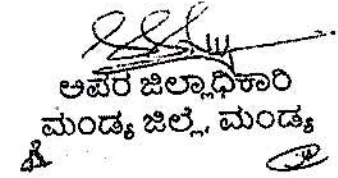 ಅಪರ ಜಿಲ್ಲಾಧಿಕಾರಿ
ಮಂಡ್ಯ ಜಿಲ್ಲೆ, ಮಂಡ್ಯ